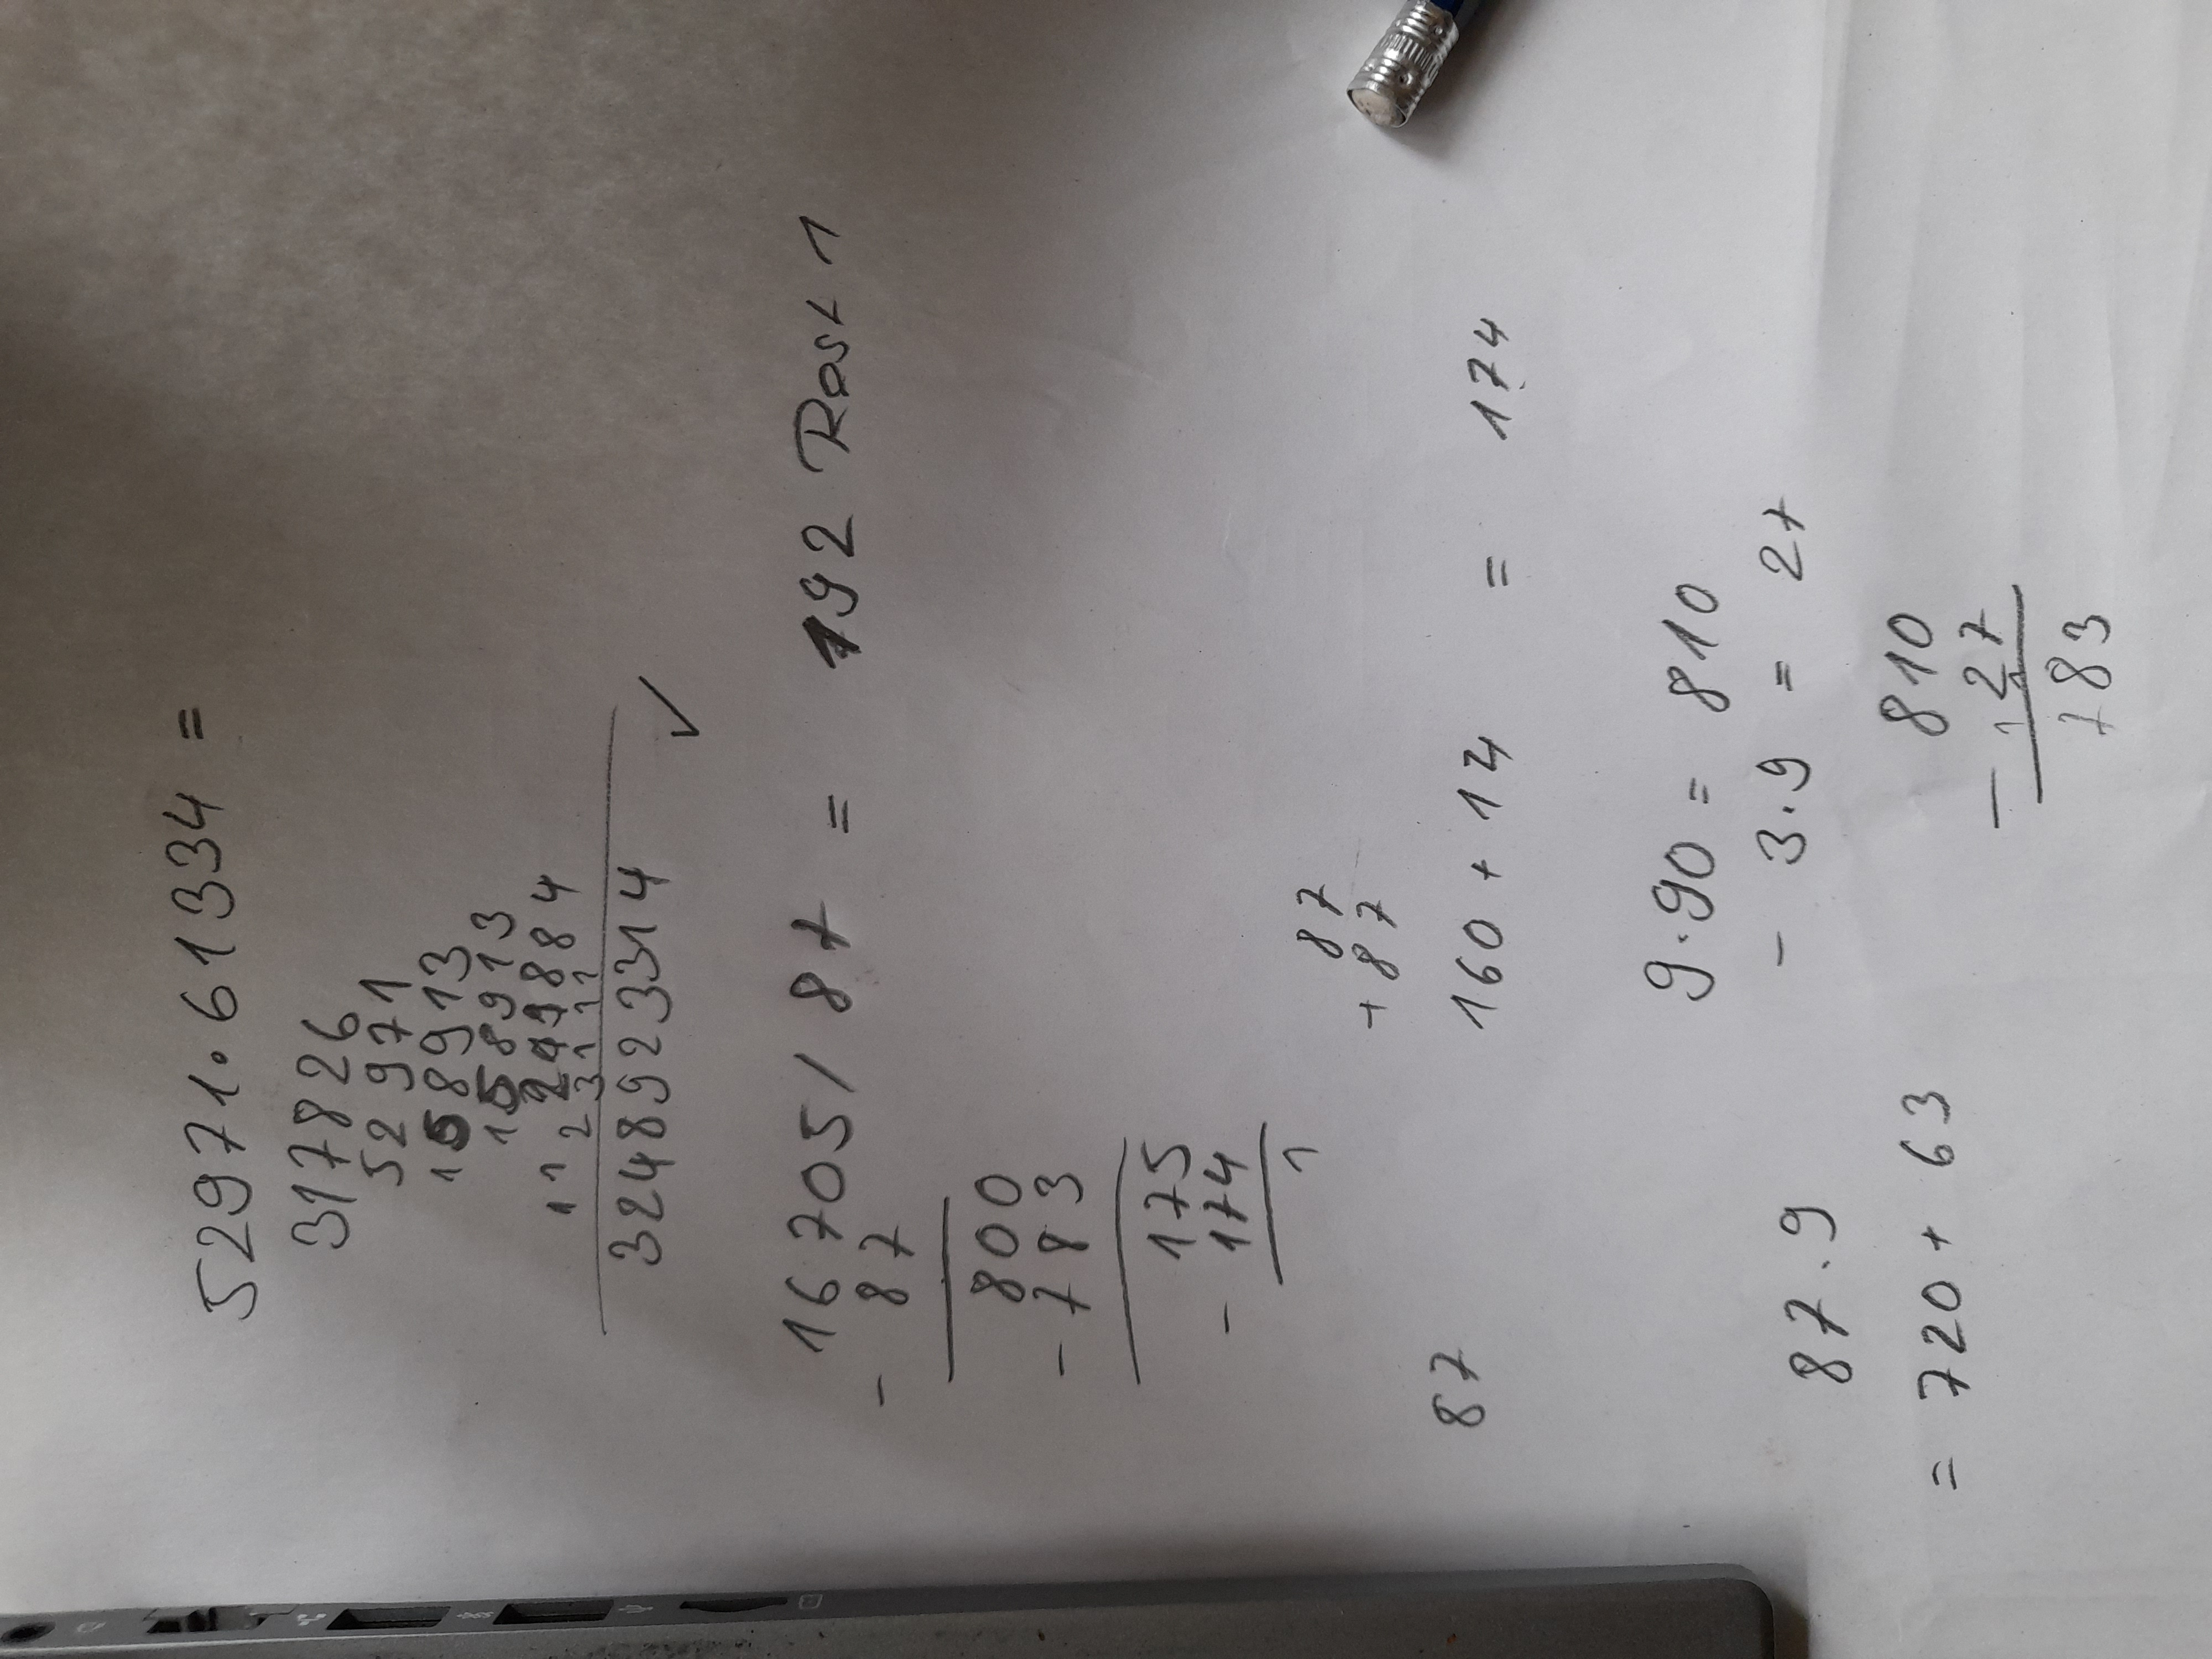 52971 · 61334 =
317826
52971
158913
158913
211884
11 2 3 1 1 1 1
3248923314
✓
16705 / 87 = 192 Rest 1
- 87
800
- 783
175
- 174
1
87
+ 87
87
160 + 14 = 174
9 · 90 = 810
- 3 · 9 = 27
87 · 9
= 720 + 63
810
- 27
1
783